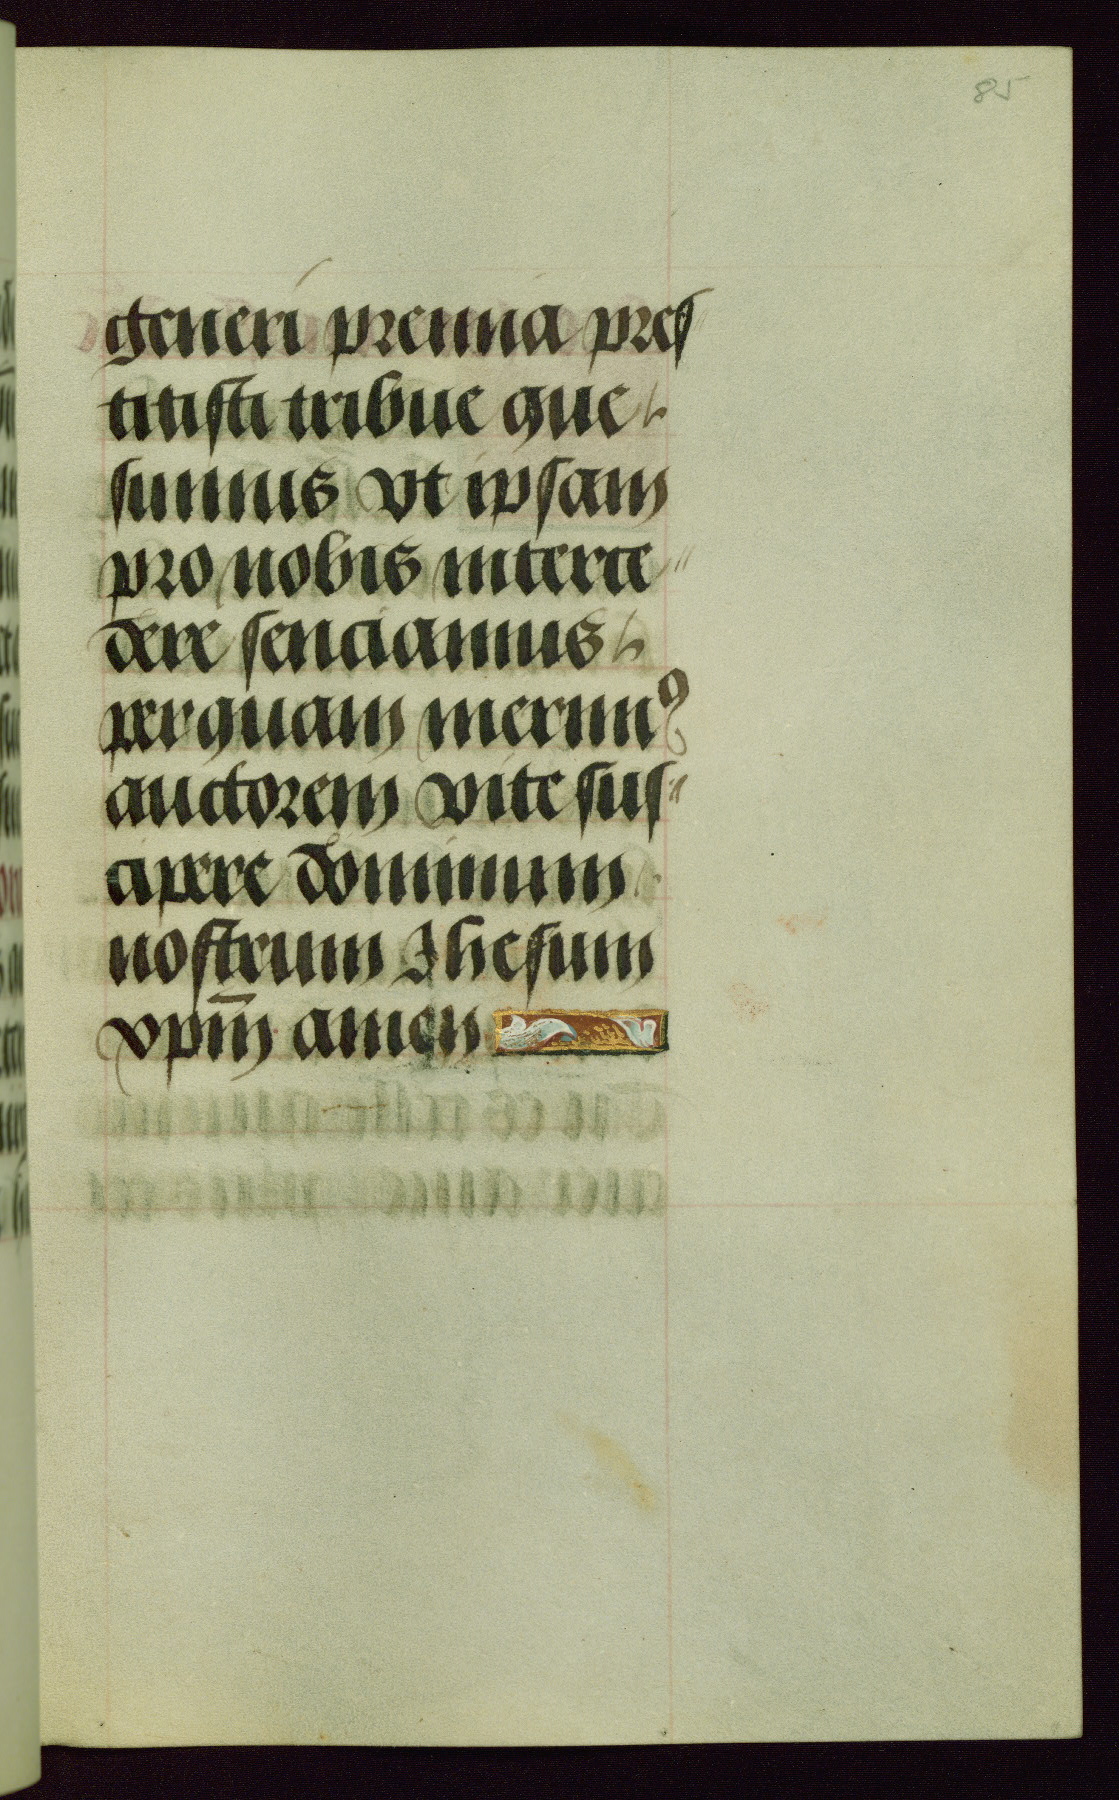 85
generi premia pres
titisti tribue que
sumus vt ipsam
pro nobis interce
dere senciamus
per quam meruimꝰ
auctorem vite sus
cipere dominum
nostrum Ihesum
xp̄m amen